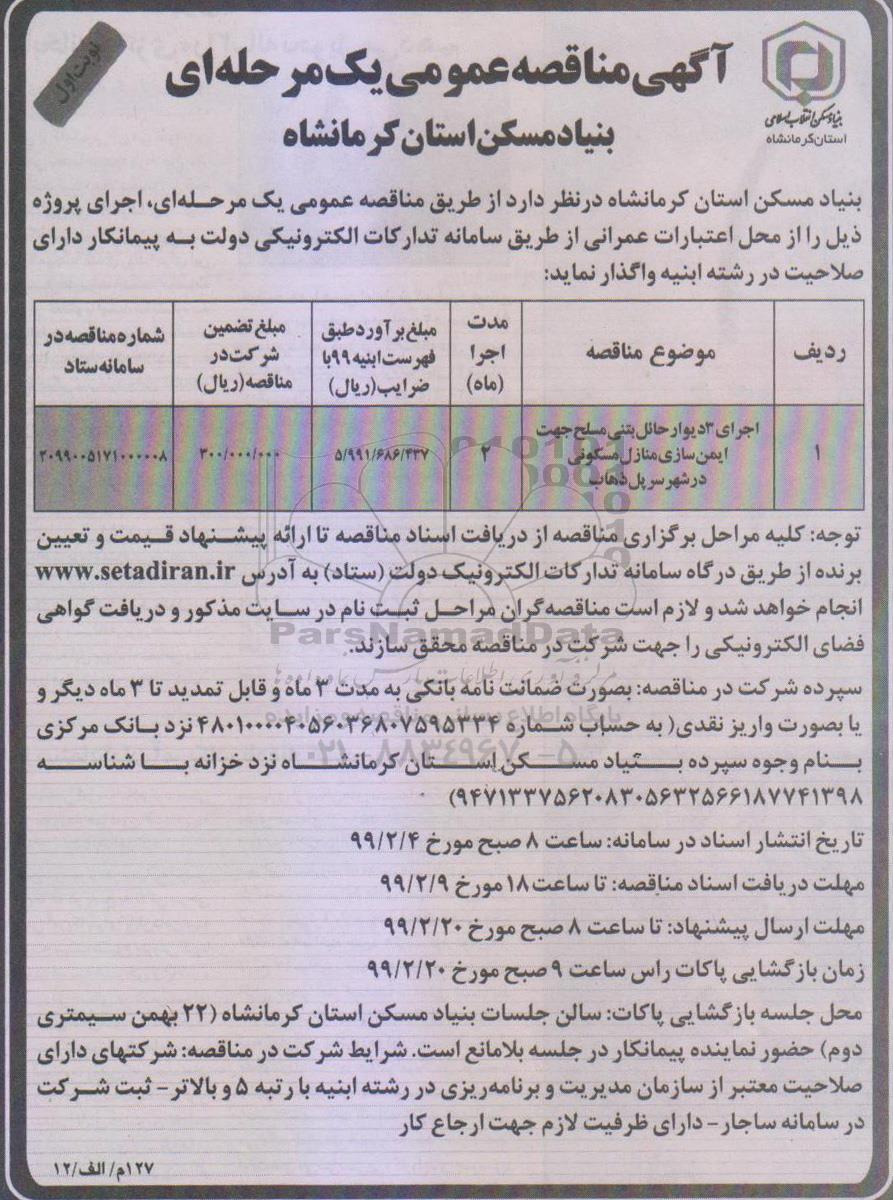 نوبت اول
آگهی مناقصه عمومی یک مرحله‌ای
بنیاد مسکن استان کرمانشاه
بنیاد مسکن انقلاب اسلامی
استان کرمانشاه
بنیاد مسکن استان کرمانشاه درنظر دارد از طریق مناقصه عمومی یک مرحله‌ای، اجرای پروژه
ذیل را از محل اعتبارات عمرانی از طریق سامانه تدارکات الکترونیکی دولت به پیمانکار دارای
صلاحیت در رشته ابنیه واگذار نماید:
ردیف
موضوع مناقصه
مدت
اجرا
(ماه)
مبلغ برآورد طبق
فهرست ابنیه ۹۹ با
ضرایب (ریال)
مبلغ تضمین
شرکت در
مناقصه (ریال)
شماره مناقصه در
سامانه ستاد
۱
اجرای ۳ دیوار حائل بتنی مسلح جهت
ایمن سازی منازل مسکونی
در شهر سرپل ذهاب
۲
۵/۹۹۱/۶۸۶/۴۳۷
۳۰۰/۰۰۰/۰۰۰
۲۰۹۹۰۰۵۱۷۱۰۰۰۰۰۸
توجه: کلیه مراحل برگزاری مناقصه از دریافت اسناد مناقصه تا ارائه پیشنهاد قیمت و تعیین
برنده از طریق درگاه سامانه تدارکات الکترونیک دولت (ستاد) به آدرس www.setadiran.ir
انجام خواهد شد و لازم است مناقصه‌گران مراحل ثبت نام در سایت مذکور و دریافت گواهی
فضای الکترونیکی را جهت شرکت در مناقصه محقق سازند.
ParsNamadData
سپرده شرکت در مناقصه: بصورت ضمانت نامه بانکی به مدت ۳ ماه و قابل تمدید تا ۳ ماه دیگر و
یا بصورت واریز نقدی( به حساب شماره ۴۸۰۱۰۰۰۰۴۰۵۶۰۳۶۸۰۷۵۹۵۳۳۴ نزد بانک مرکزی
بنام وجوه سپرده بنیاد مسکن استان کرمانشاه نزد خزانه با شناسه
۹۴۷۱۳۳۷۵۶۲۰۸۳۰۵۶۳۲۵۶۶۱۸۷۷۴۱۳۹۸)
تاریخ انتشار اسناد در سامانه: ساعت ۸ صبح مورخ ۹۹/۲/۴
مهلت دریافت اسناد مناقصه: تا ساعت ۱۸ مورخ ۹۹/۲/۹
مهلت ارسال پیشنهاد: تا ساعت ۸ صبح مورخ ۹۹/۲/۲۰
زمان بازگشایی پاکات راس ساعت ۹ صبح مورخ ۹۹/۲/۲۰
محل جلسه بازگشایی پاکات: سالن جلسات بنیاد مسکن استان کرمانشاه (۲۲ بهمن سیمتری
دوم) حضور نماینده پیمانکار در جلسه بلامانع است. شرایط شرکت در مناقصه: شرکتهای دارای
صلاحیت معتبر از سازمان مدیریت و برنامه‌ریزی در رشته ابنیه با رتبه ۵ و بالاتر - ثبت شرکت
در سامانه ساجار - دارای ظرفیت لازم جهت ارجاع کار
۱۲۷م/ الف/۱۲